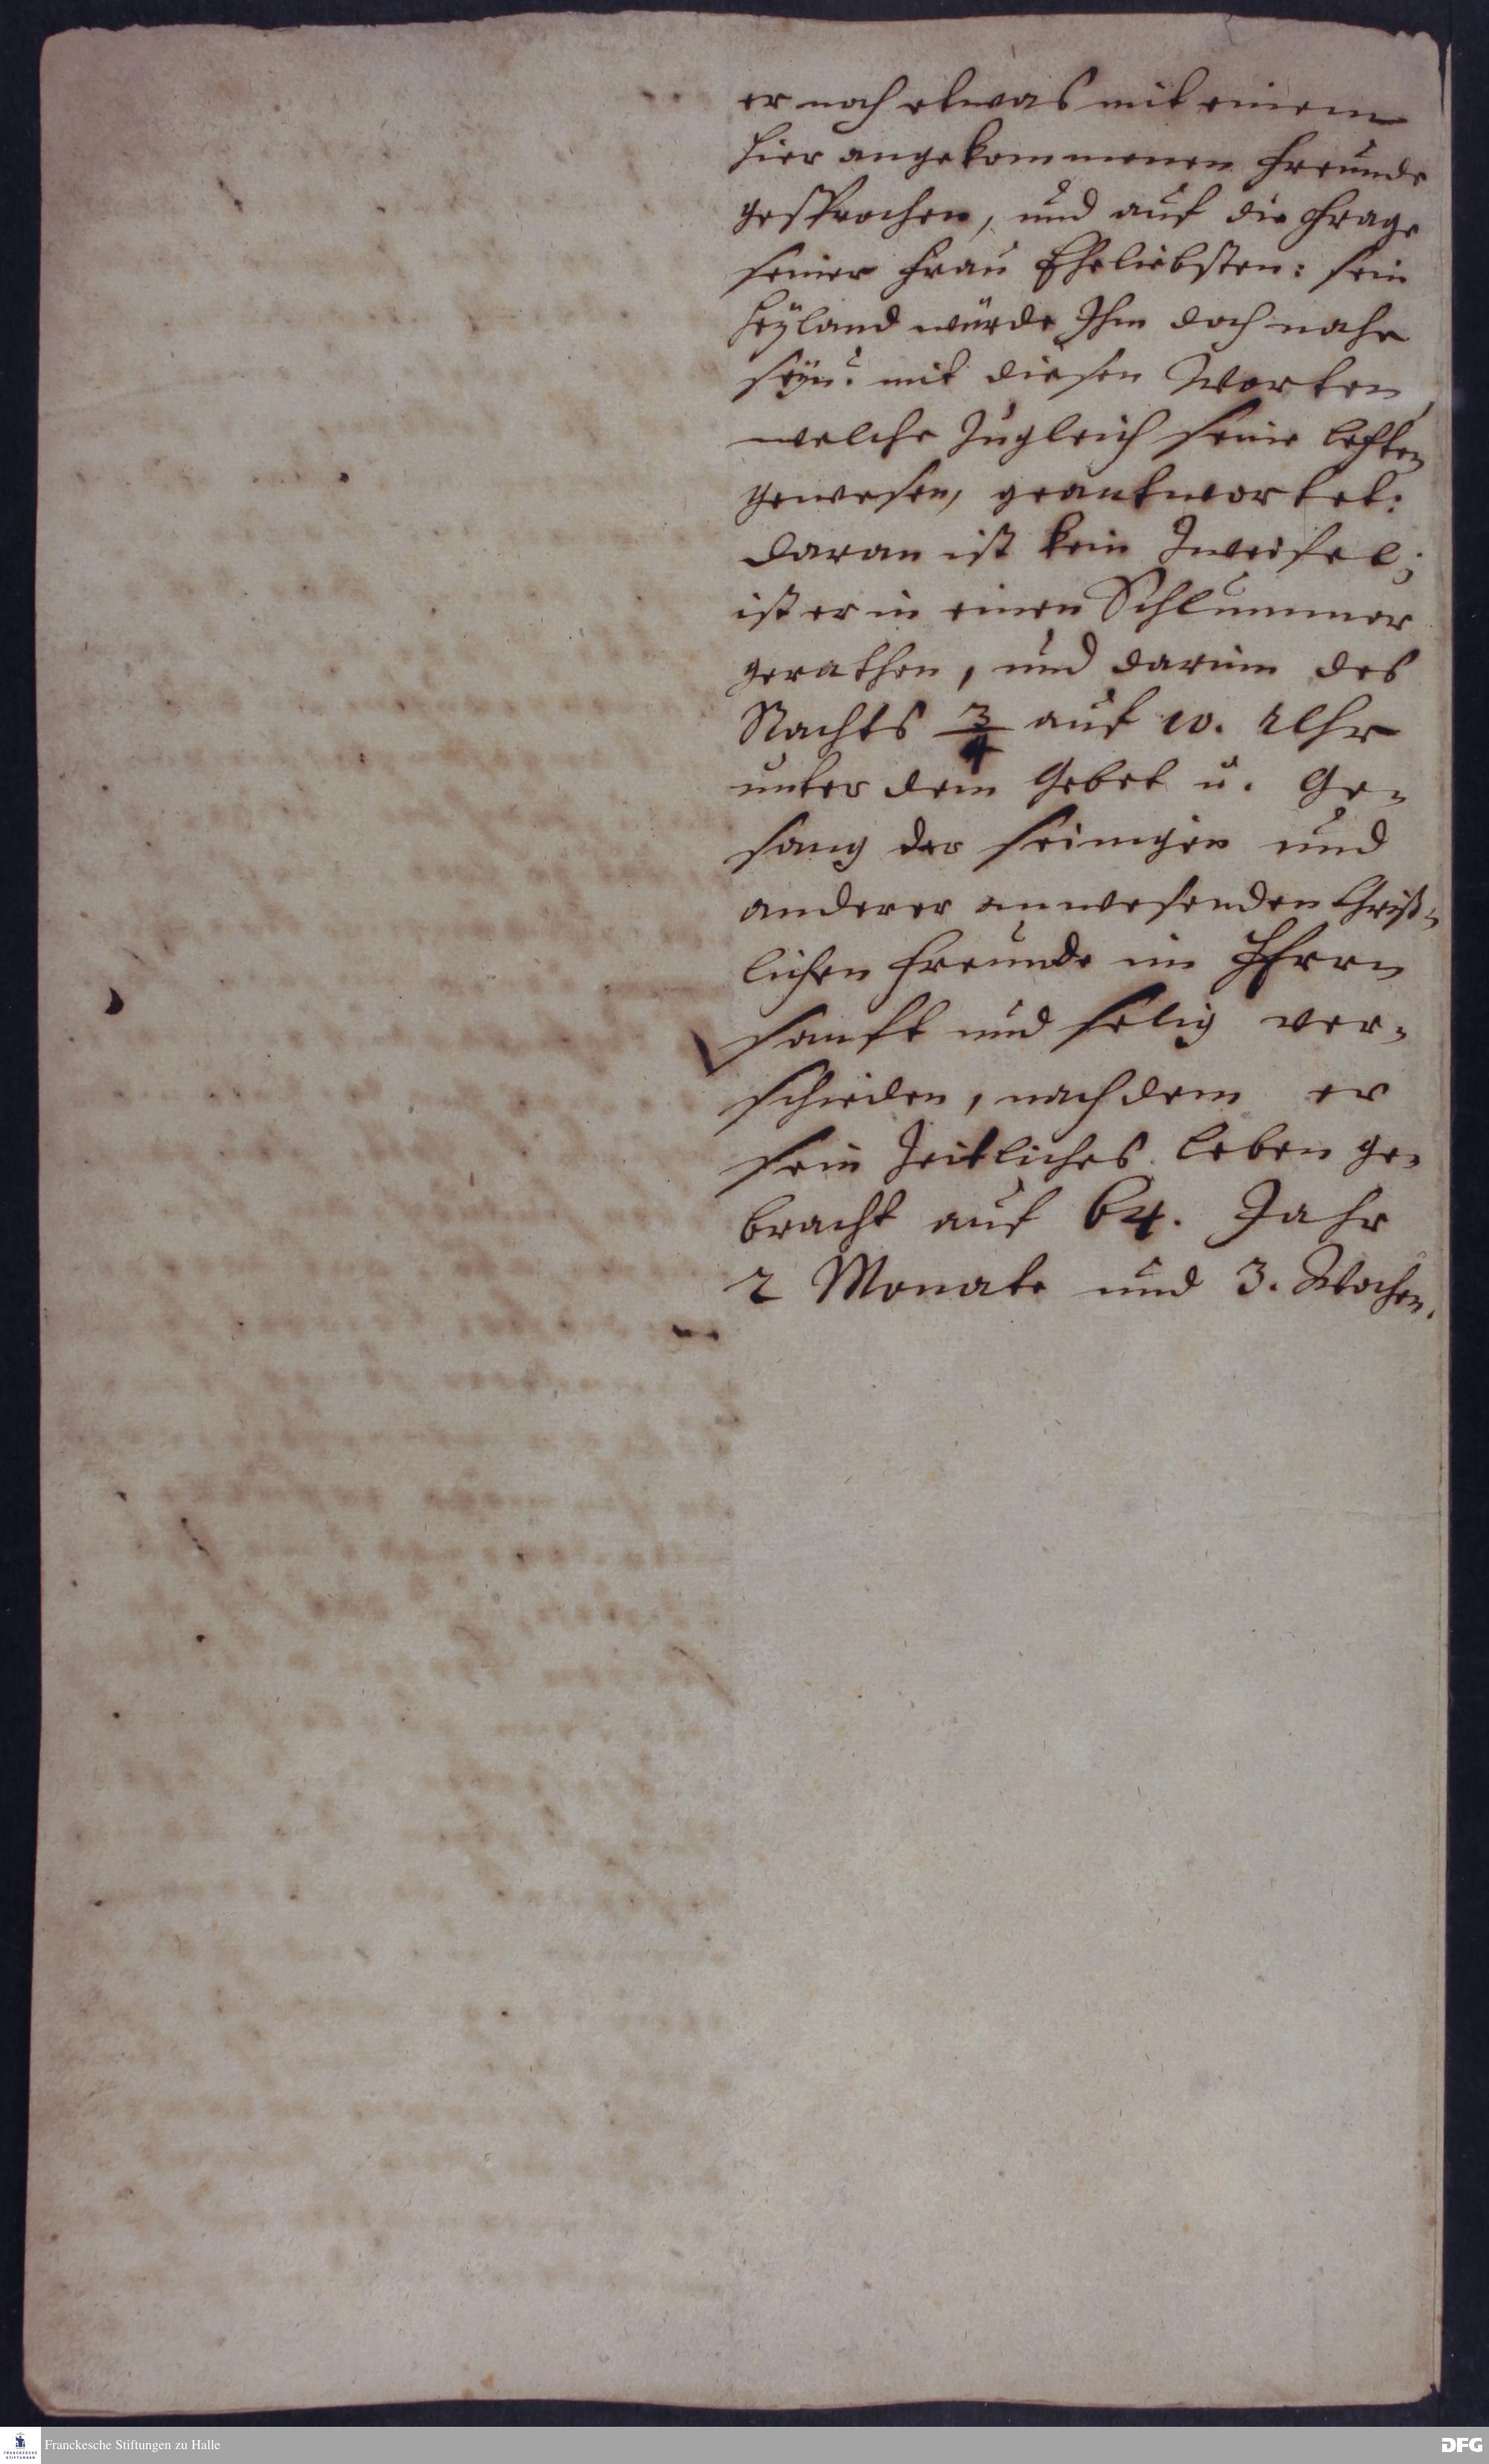 er noch etwas mit einem
hier angekommenen Freunde
gesprochen, und auf die Frage
seiner Frau Eheliebsten: sein
Heyland würde Ihm doch nahe
seyn? mit diesen Worten,
welche zugleich seine letzten
gewesen, geantwortet:
daran ist kein Zweifel;
ist er in einen Schlummer
gerathen, und darinn des
Nachts 3/4 auf 10. Uhr
unter dem Gebet u. Ge-
sang der seinigen und
anderer anwesenden Christ-
lichen Freunde im HErrn
sanft und selig ver-
schieden, nachdem er
sein zeitliches Leben ge-
bracht auf 64. Jahr
2 Monate und 3. Wochen.
Franckesche Stiftungen zu Halle
DFG